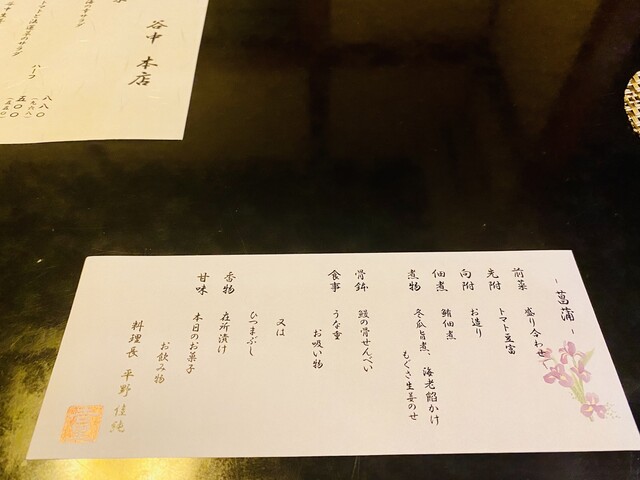 谷中 本店
トマトと法蓮草のサラダ
ハーフ
八八〇
五〇〇
－菖蒲－
前菜 盛り合わせ
先附 トマト豆富
向附 お造り
佃煮 鮪佃煮
煮物 冬瓜旨煮、海老餡かけ
もぐさ生姜のせ
鰻の骨せんべい
食事 うな重
お吸い物
又は
ひつまぶし
香物 在所漬け
甘味 本日のお菓子
お飲み物
料理長 平野 佳純